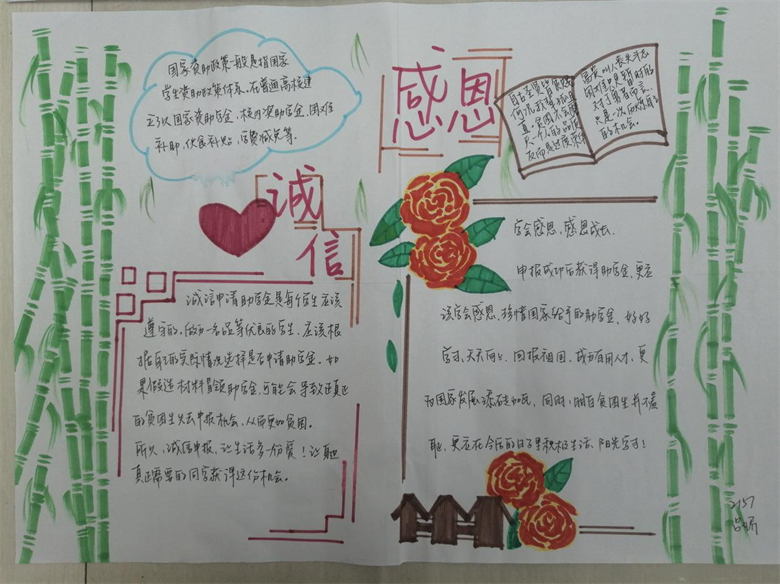 国家资助政策一般是指国家
学生资助政策体系,在普通高校建
立了以国家资助学金、校内资助学金、困难
补助,伙食补贴,学费减免等。
诚
信
诚信申请助学金是每个学生应该
遵守的,做为一名品学优良的学生,应该根
据自己的实际情况选择是否申请助学金。如
果假造材料冒领助学金,可能会导致还真正
的贫困生失去申报机会,从而更加贫困。
所以,诚信申报,让生活多一份爱!让真
真正需要的同学获得这份机会。
感恩
困难只是暂时的
对于勇者而言
的机会。
学会感恩,感恩成长
申报成功后获得助学金,更应
该学会感恩,珍惜国家给予的助学金,好好
学习,天天向上,回报祖国,成为有用人才,更
为国家发展添砖加瓦,同时,明白贫困生并不羞
耻,更应在今后的日子里积极生活,阳光学习!
2157